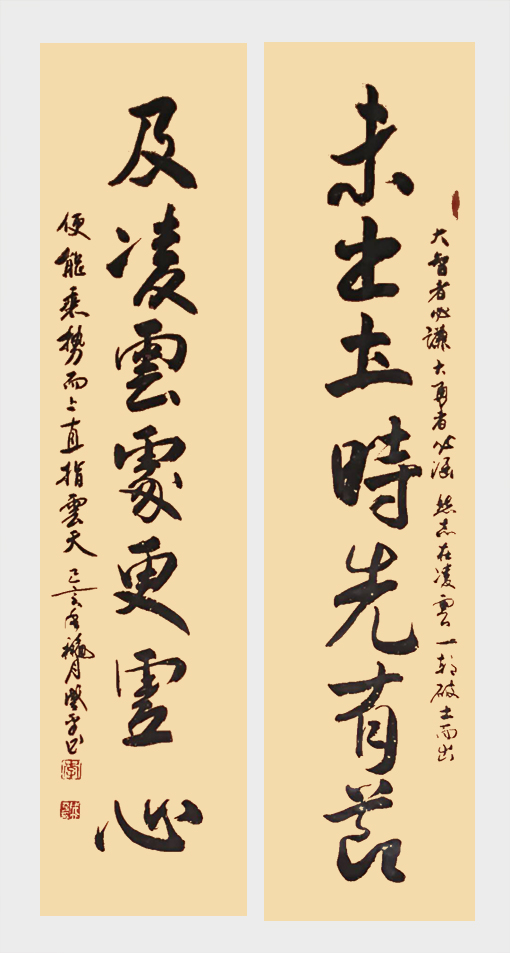 大智者必謙大勇者必涵然志在凌雲一朝破土而出
未出土時先有節
及凌雲處更虛心
便能乘勢而上直指雲天己亥月